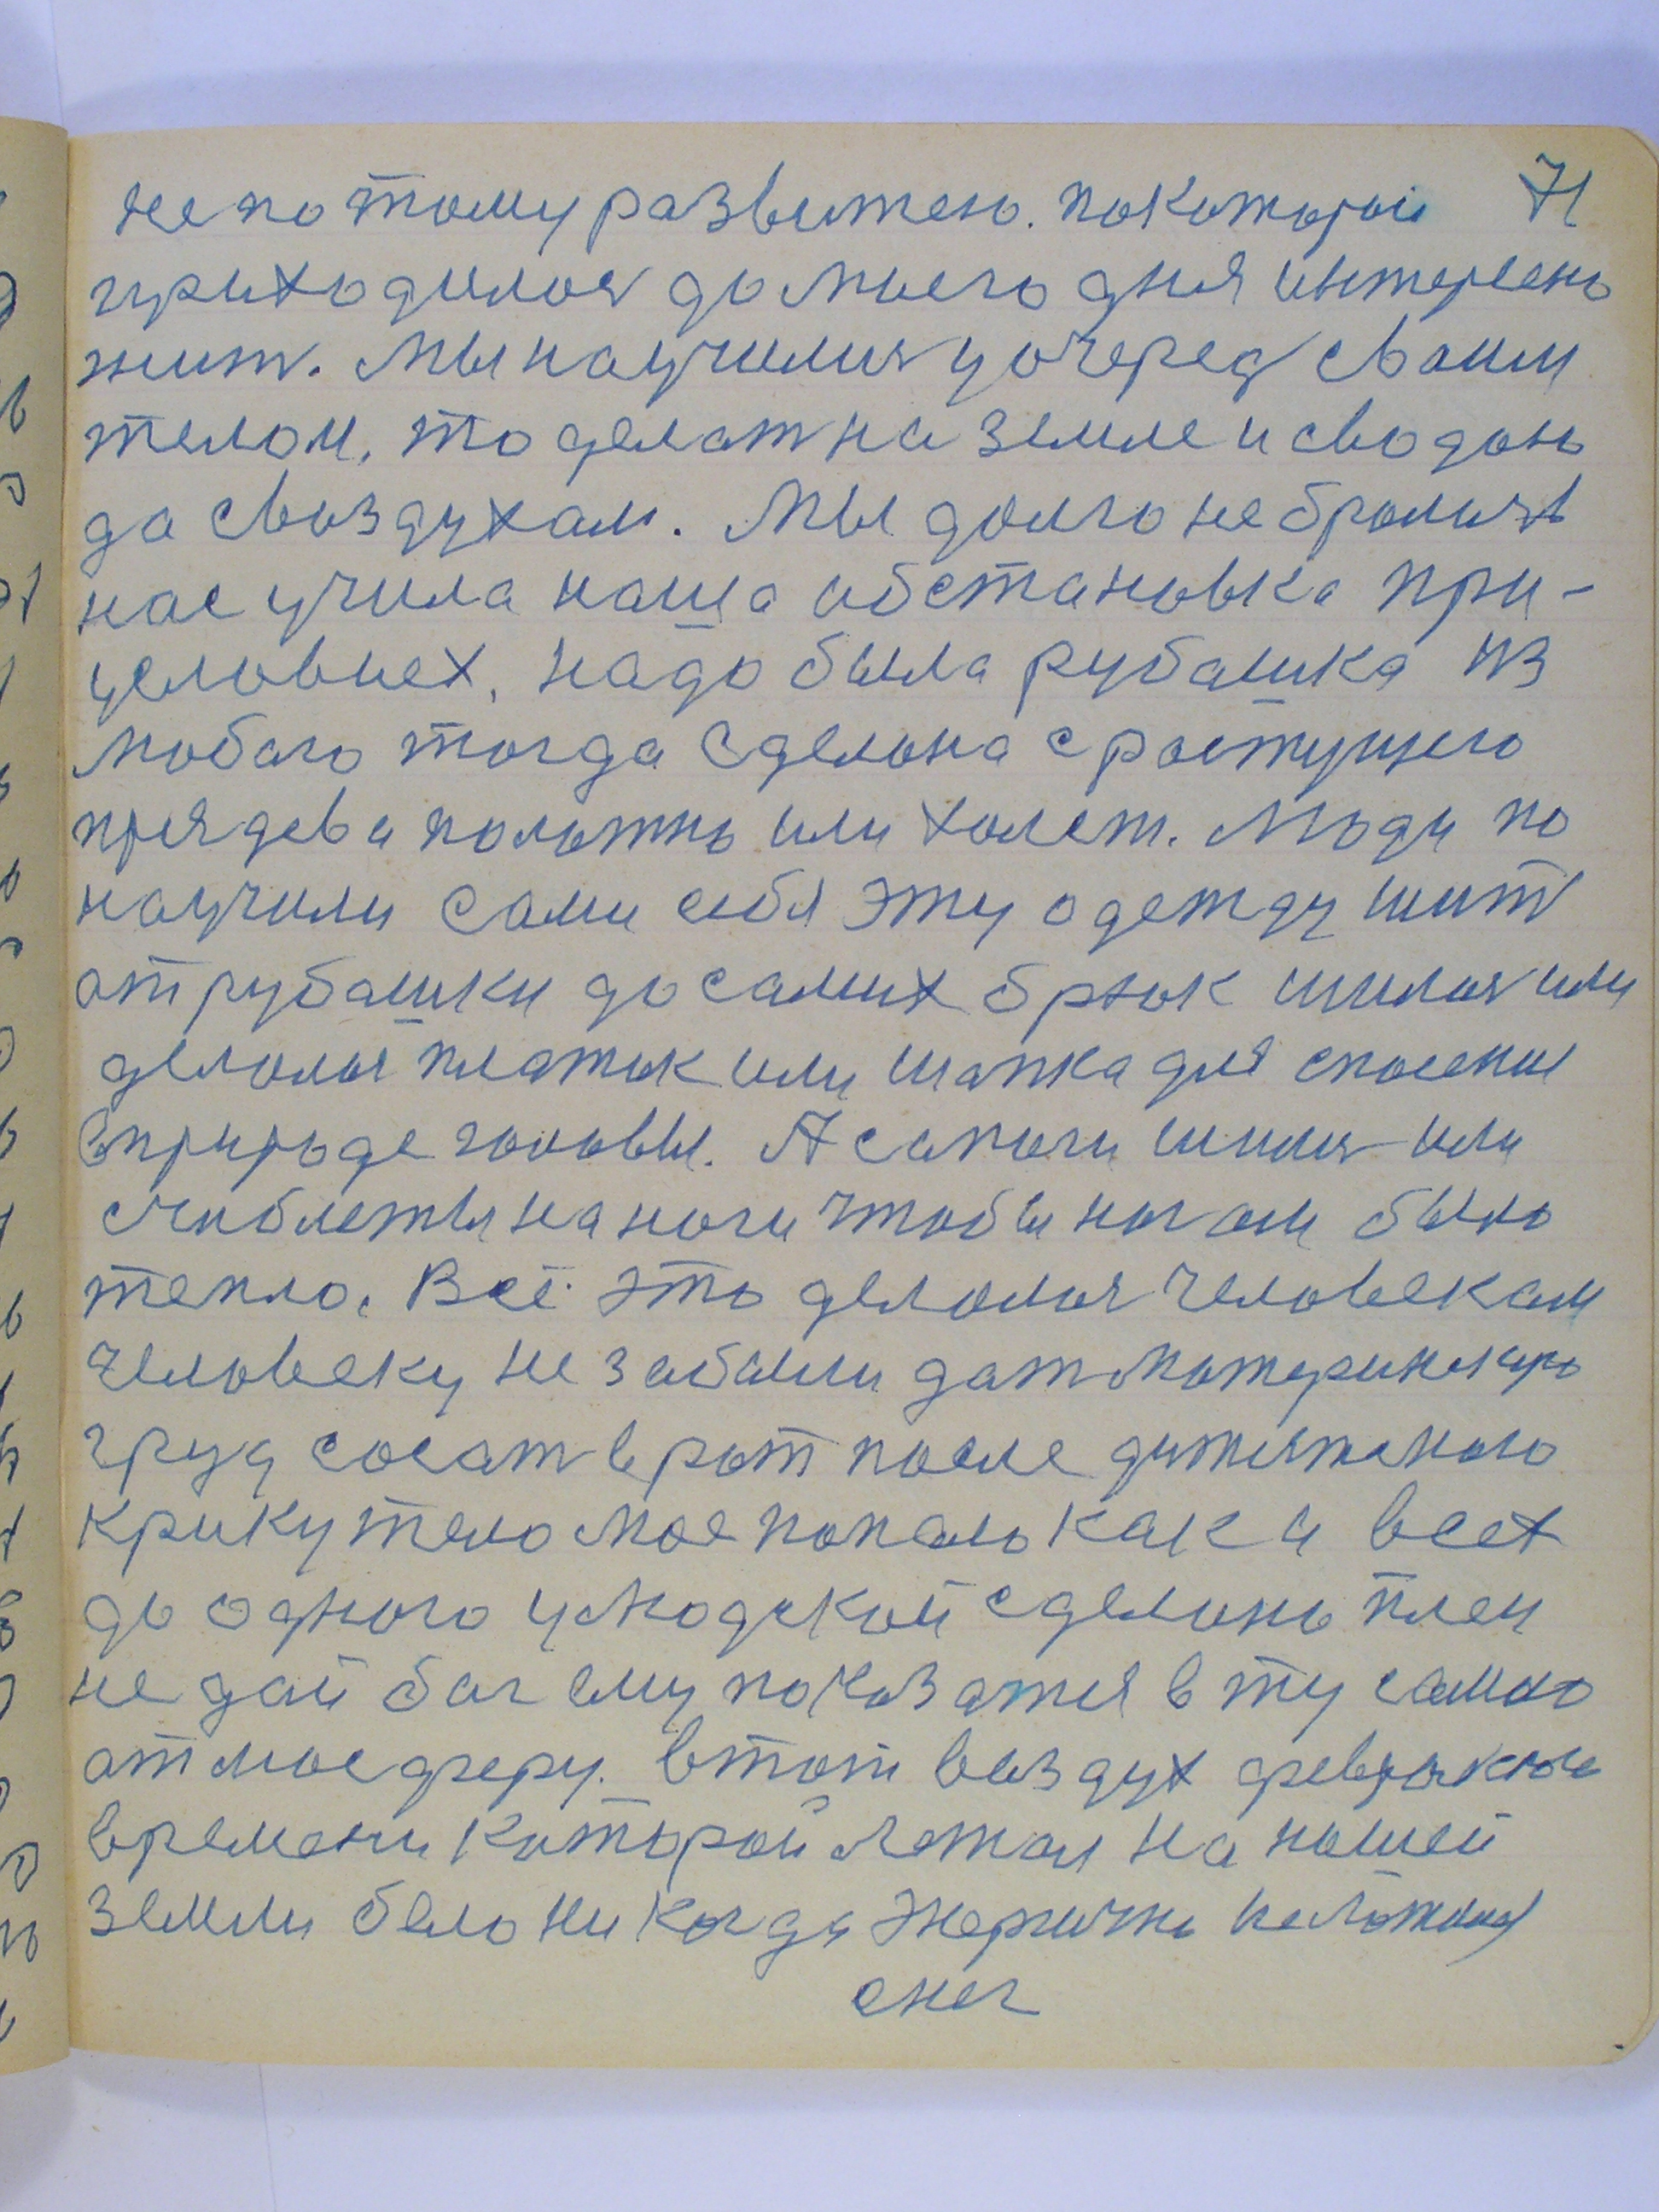 не по тому развитею. покоторои 71
приходилося до моего дня интересно
жит. Мы научилися у очередь своим
телом, то делат на земле и сводою
да своздухам. Мы долго не бралися
нас учила наша обстановка при-
условиех, надо была рубашка из
любого тогда сделана с ростущего
прядева полотно или холст. Люди по
научили сами себя эту одетжду шит
от рубашки до самих брюк шилося или
делолося платок или шапка для спасения
в природе головы. А сапоги шилися или
на ноги чтобы ногам было
тепло. Всё это делолося человекам
человеку не забыли дат материнскую
груд сосат в рот после дитятеного
крику тело мое попало как и всех
до одного у людской сделоно плен
не дай бог ему показатся в ту самую
атмосферу. втот воздух
времени которой лежал на нашей
земли было никогда энергично
снег